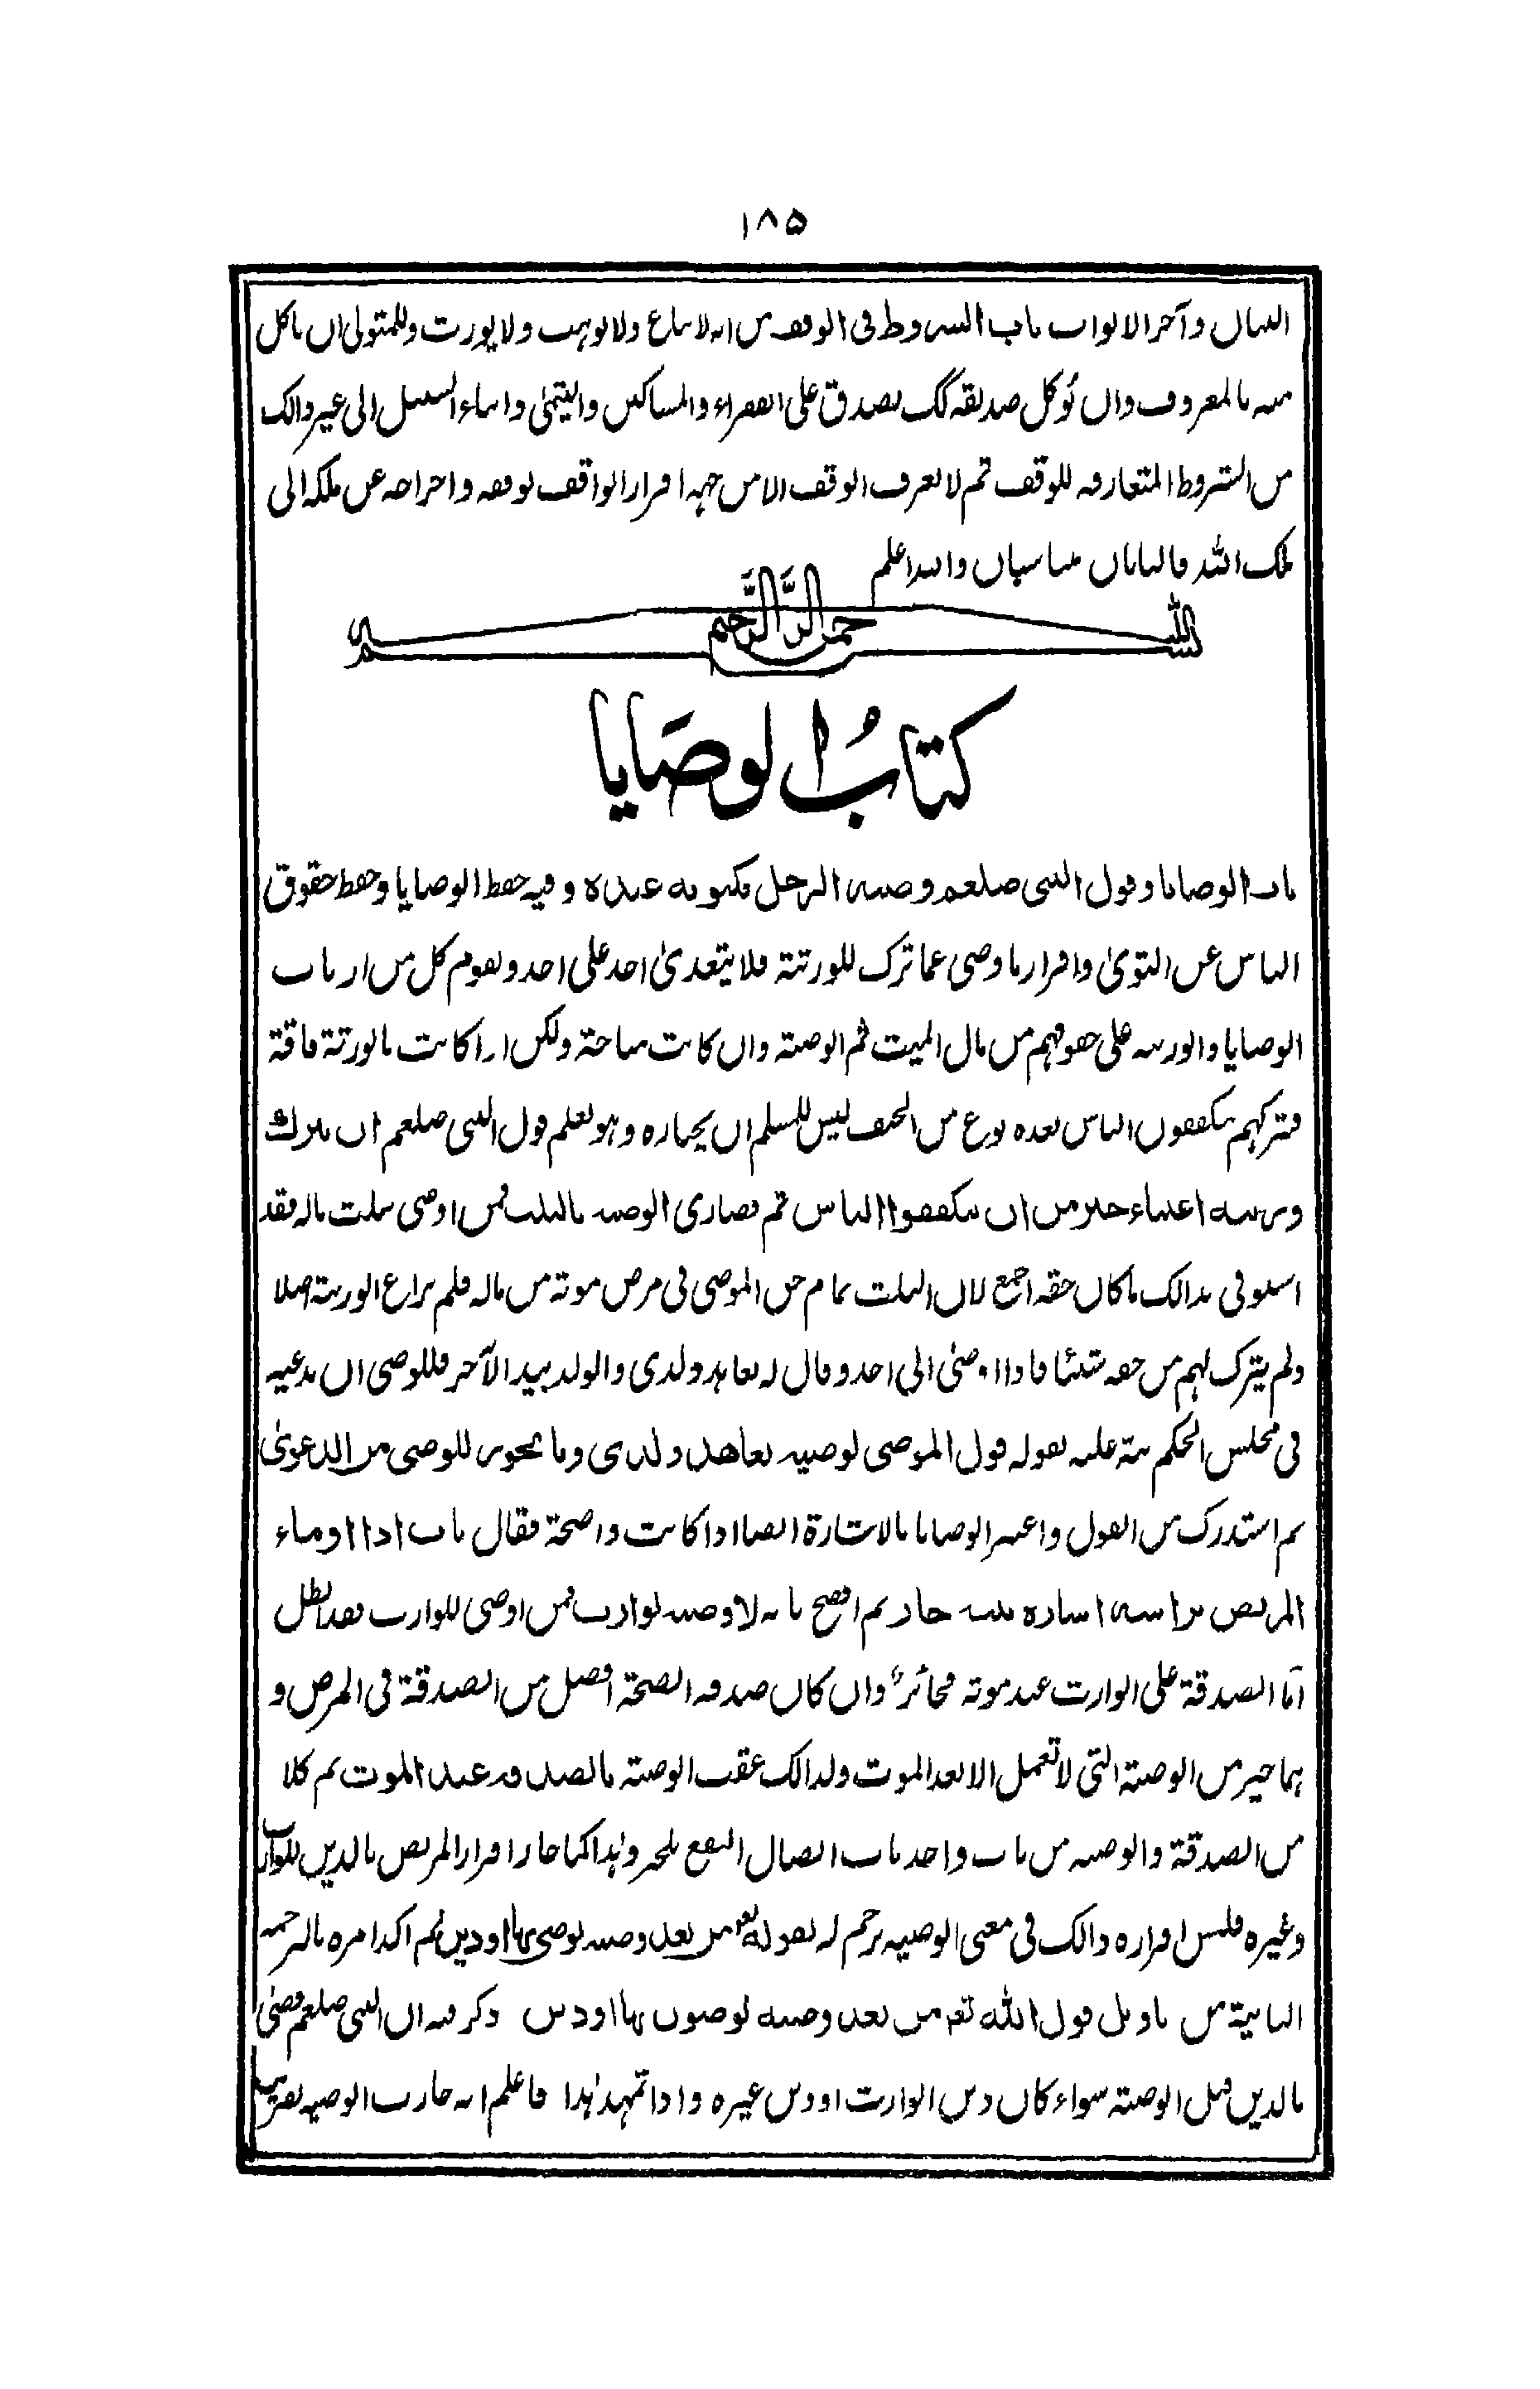 ١٨٥
البيان وآخر الابواب باب الشروط فى الوقف من انه لا يباع ولا يوهب ولا يورث وللمتولى ان ياكل
منه بالمعروف وان يؤكل صديقه يصدق على الفقراء والمساكين واليتمىٰ وابناء السبيل الى غير ذالك
من الشروط المتعارفه للوقف ثم لا يعرف الوقف الا من جهة اقرار الواقف لوقفه واخراجه عن ملكه الى
ملك الله فالبابان متناسبان والله اعلم
بسم الله الرحمن الرحيم
كتابُ الوصَايا
باب الوصايا وقول النبى صلعم وصية الرجل مكتوبة عنده وفيه حفظ الوصايا وحفظ حقوق
الناس عن التوىٰ واقرار ما وصى عما ترك للورثة فلا يتعدىٰ احد على احد ويقوم كل من ارباب
الوصايا والورثة على حقوقهم من مال الميت ثم الوصية وان كانت مباحة ولكن اذا كانت بالورثة فاقة
فتركهم يتكففون الناس بعده نوع من الحيف ليس للمسلم ان يختاره وهو يعلم قول النبى صلعم ان يترك
ورثته اغنياء خير من ان يتكففوا الناس ثم قصارى الوصية بالثلث فمن اوصى بثلث ماله فقد
استوفى بذالك ما كان حقه اجمع لان الثلث تمام حق الموصى فى مرض موته من ماله فلم يراع الورثة اصلا
ولم يترك لهم من حقه شيئا فاذا اوصىٰ الى احد وقال له تعاهد ولدى والولد بيد الآخر فللوصى ان يدعيه
فى مجلس الحكم نبه عليه بقوله قول الموصى لوصيه تعاهد ولدى وما يجوز للوصى من الدعوىٰ
ثم استدرك من القول واعتبر الوصايا بالاشارة ايضا اذا كانت واضحة فقال باب اذا اوماء
المريض براسه اشارة بينة جاز ثم افصح بانه لا وصية لوارث فمن اوصى للوارث فقد ابطل
اما الصدقة على الوارث عند موته فجائز وان كان صدقة الصحة افضل من الصدقة فى المرض و
هما خير من الوصية التى لا تعمل الا بعد الموت ولذالك عقب الوصية بالصدقة عند الموت ثم كلا
من الصدقة والوصية من باب واحد باب ايصال النفع للغير وهٰذا كما جاز اقرار المريض بالدين للوارث
وغيره فليس اقراره ذالك فى معنى الوصيه ترجم له بقوله تعم من بعد وصية يوصى بها او دين ثم اكد امره بالترجمة
الثانية من تاويل قول الله تعم من بعد وصية توصون بها او دين وذكر فيه ان النبى صلعم قضىٰ
بالدين قبل الوصية سواء كان دين الوارث او دين غيره واذا تمهد هٰذا فاعلم انه جازت الوصية